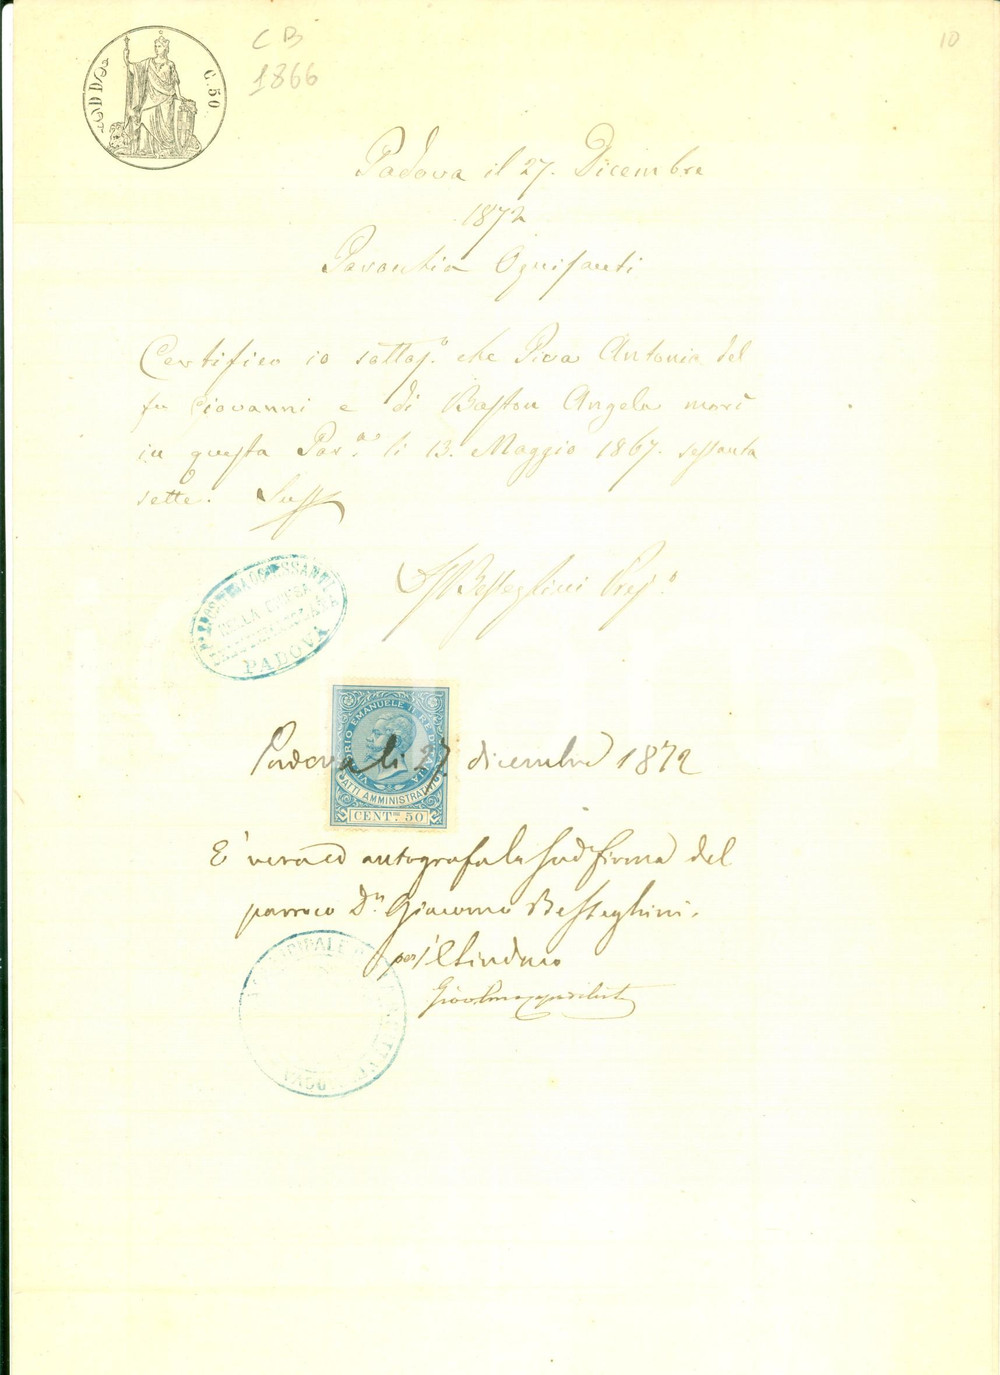 C. 50
C B
1866
10
Padova il 27. Dicembre
1872
Parochia Ognisanti
Certifico io sottos.º che Piva Antonia del
fu Giovanni e di Baston Angela morì
in questa Par.ª li 13. Maggio 1867. sessanta
sette.
Besseghini
DELLA CHIESA
PADOVA
VITTORIO EMANUELE II RE D'ITALIA
ATTI AMMINISTRATIVI
CENT.MI 50
Padova li 27 dicembre 1872
E' vera ed autografa la sud.a firma del
parroco D.n Giacomo Besseghini.
per Il Sindaco